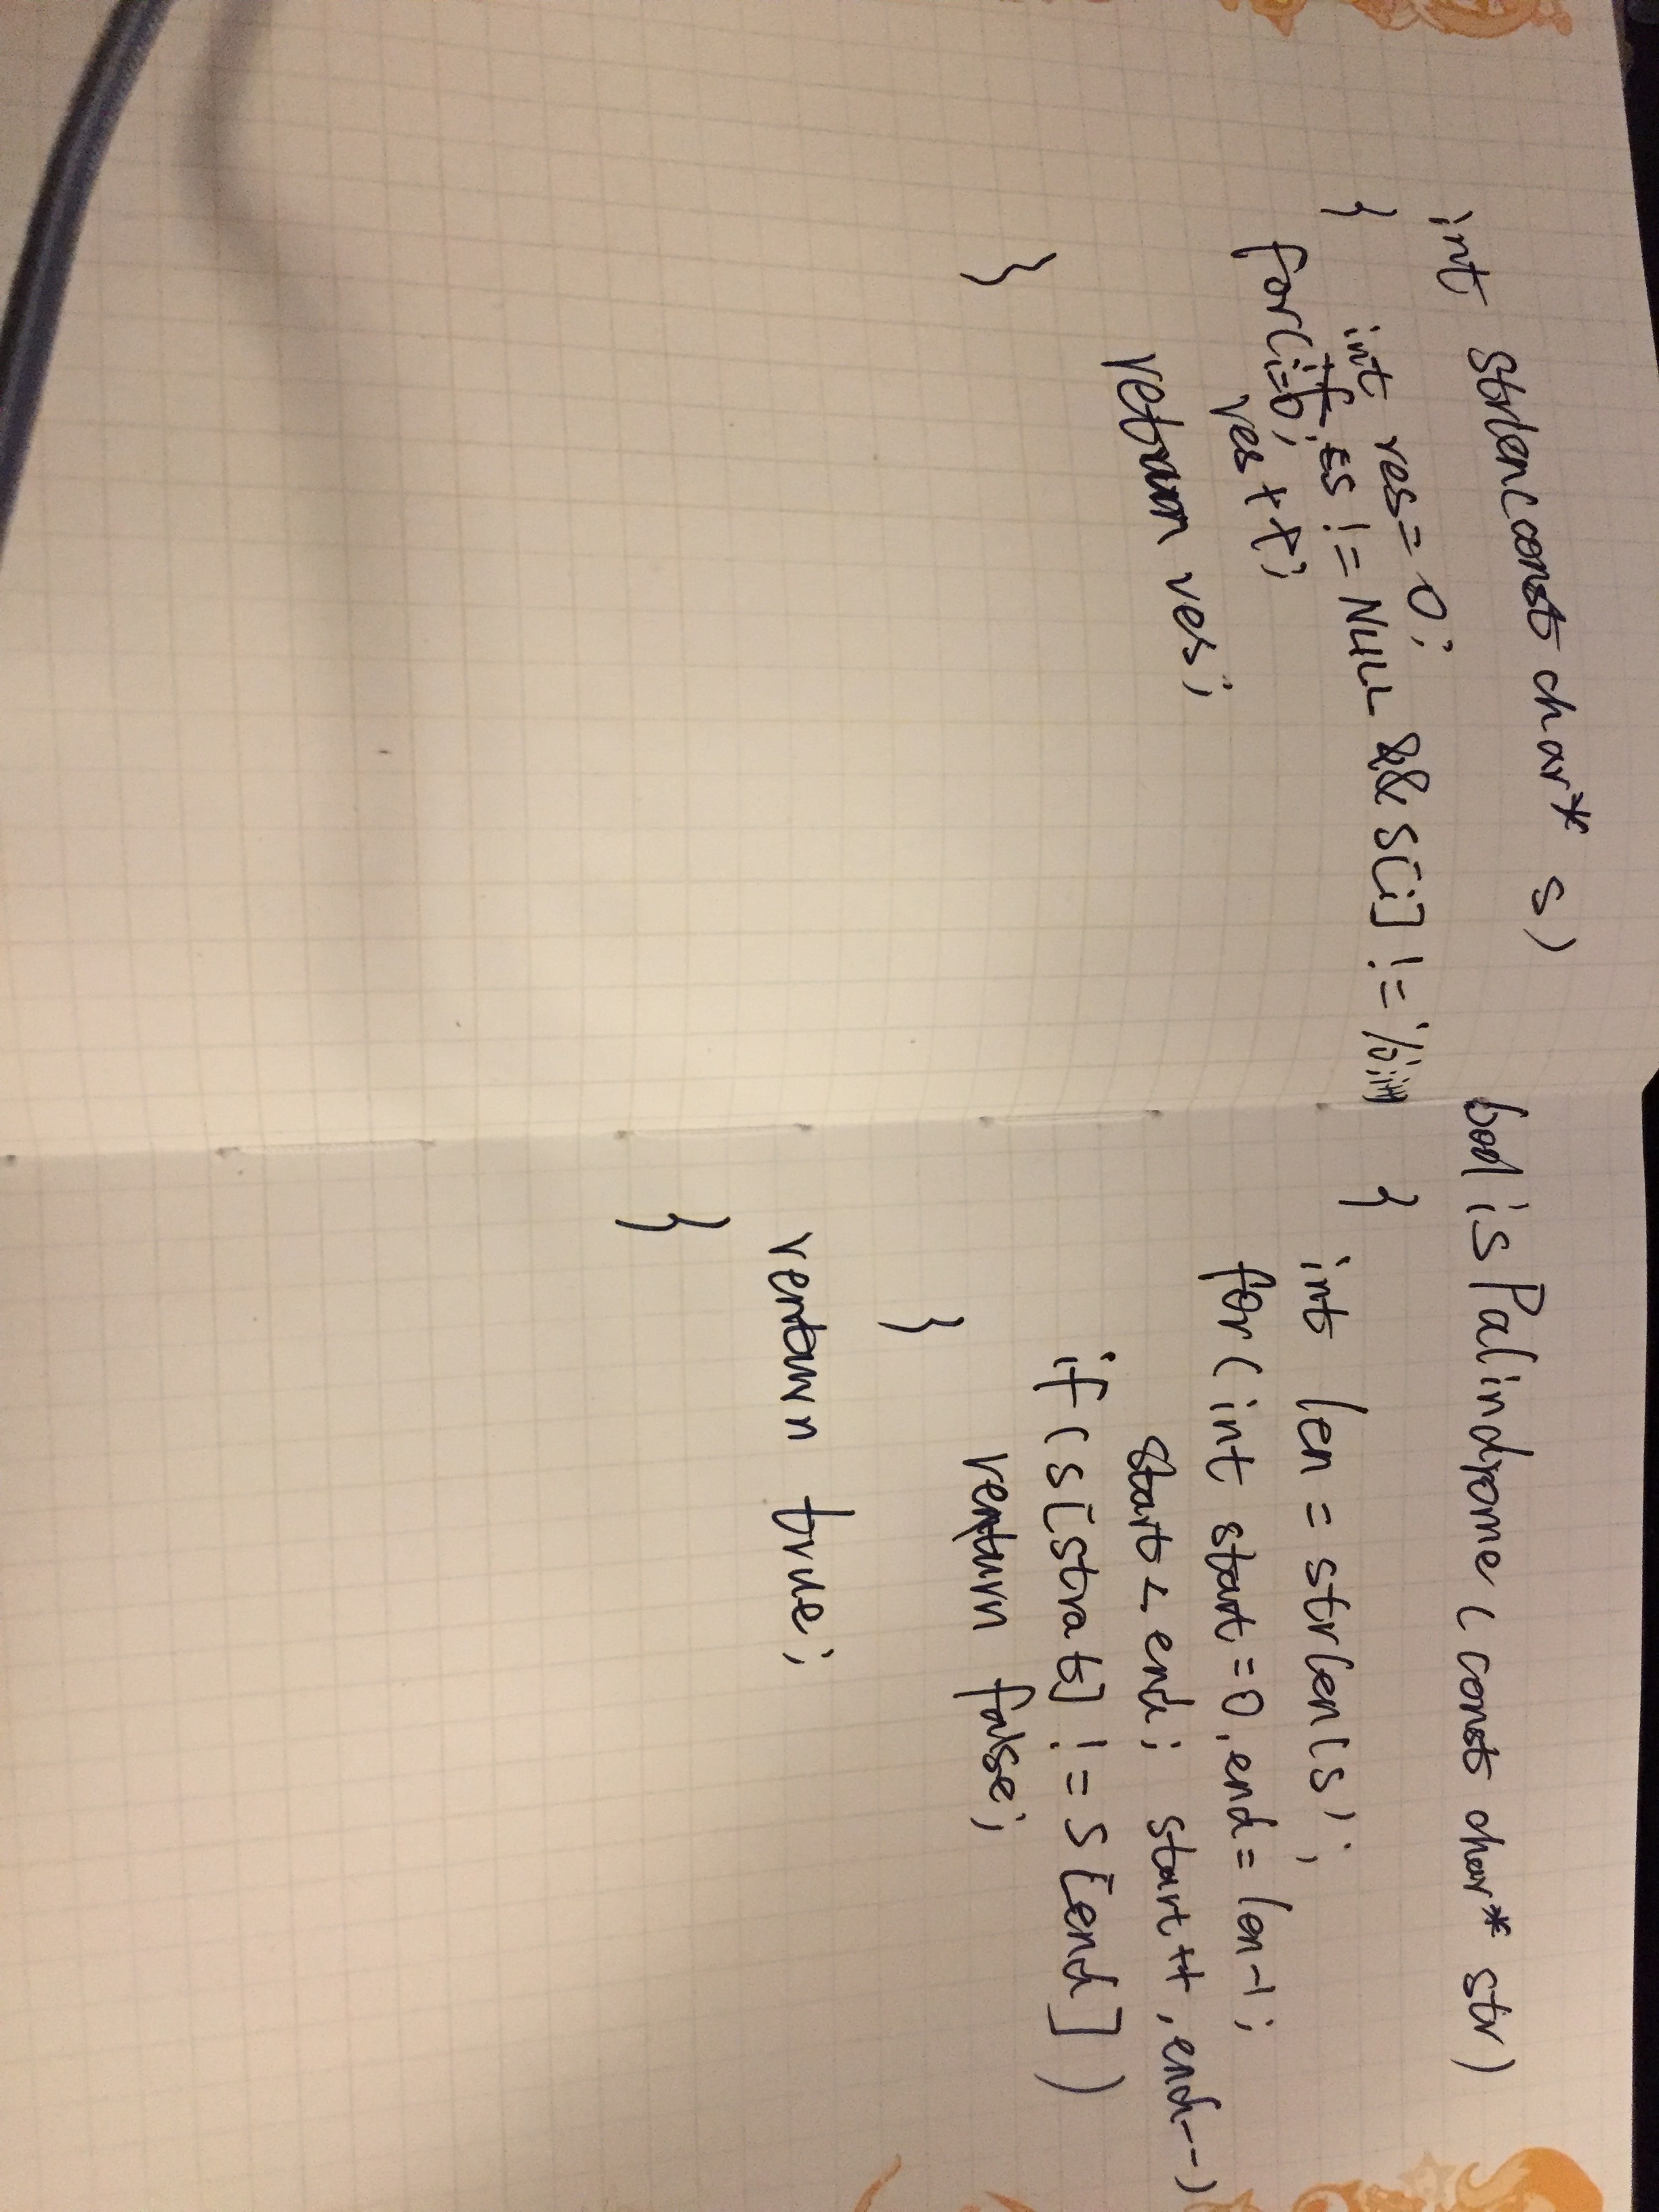 int strlen(const char* s)
{
int res=0;
for(i=0; s != NULL && s[i] !=
res++;
return res;
}
bool isPalindrome(const char* str)
{
int len = strlen(s);
for(int start=0, end=len-1;
start<end; start++, end--)
if(s[strat] != s[end])
return false;
}
return true;
}